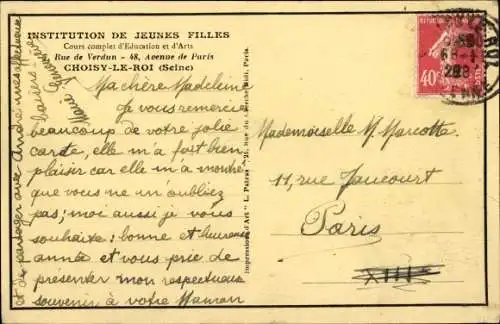 INSTITUTION DE JEUNES FILLES
Cours complet d'Education et d'Arts
Rue de Verdun - 48, Avenue de Paris
CHOISY-LE-ROI (Seine)
Ma chère Madeleine
Je vous remercie
beaucoup de votre jolie
carte, elle m'a fait bien
plaisir car elle m'a montré
que vous ne m'oubliez
pas; moi aussi je vous
souhaite: bonne et heureuse
année et vous prie de
présenter mon respectueux
souvenir à votre Maman
et de partager avec André mes affectueux
baisers
Impressions d'Art "L. Patras" Paris.
40c
Mademoiselle M. Marcotte
11, rue Jaucourt
Paris
XIIIe